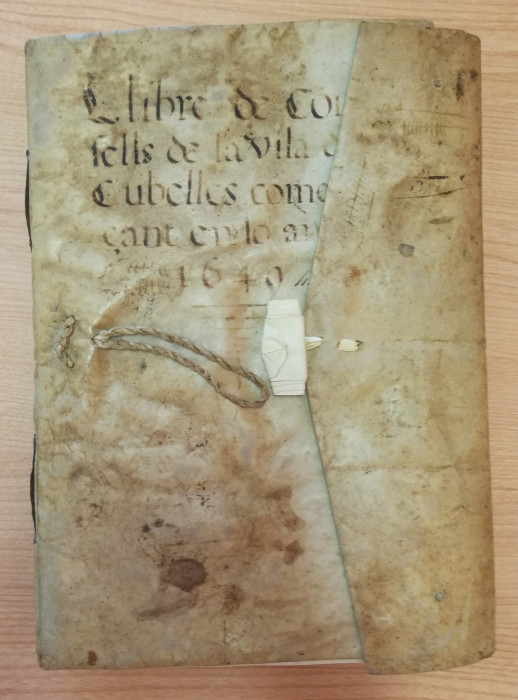 Llibre de Con
sells de la Vila d
Cubelles come
çant en lo an
1649